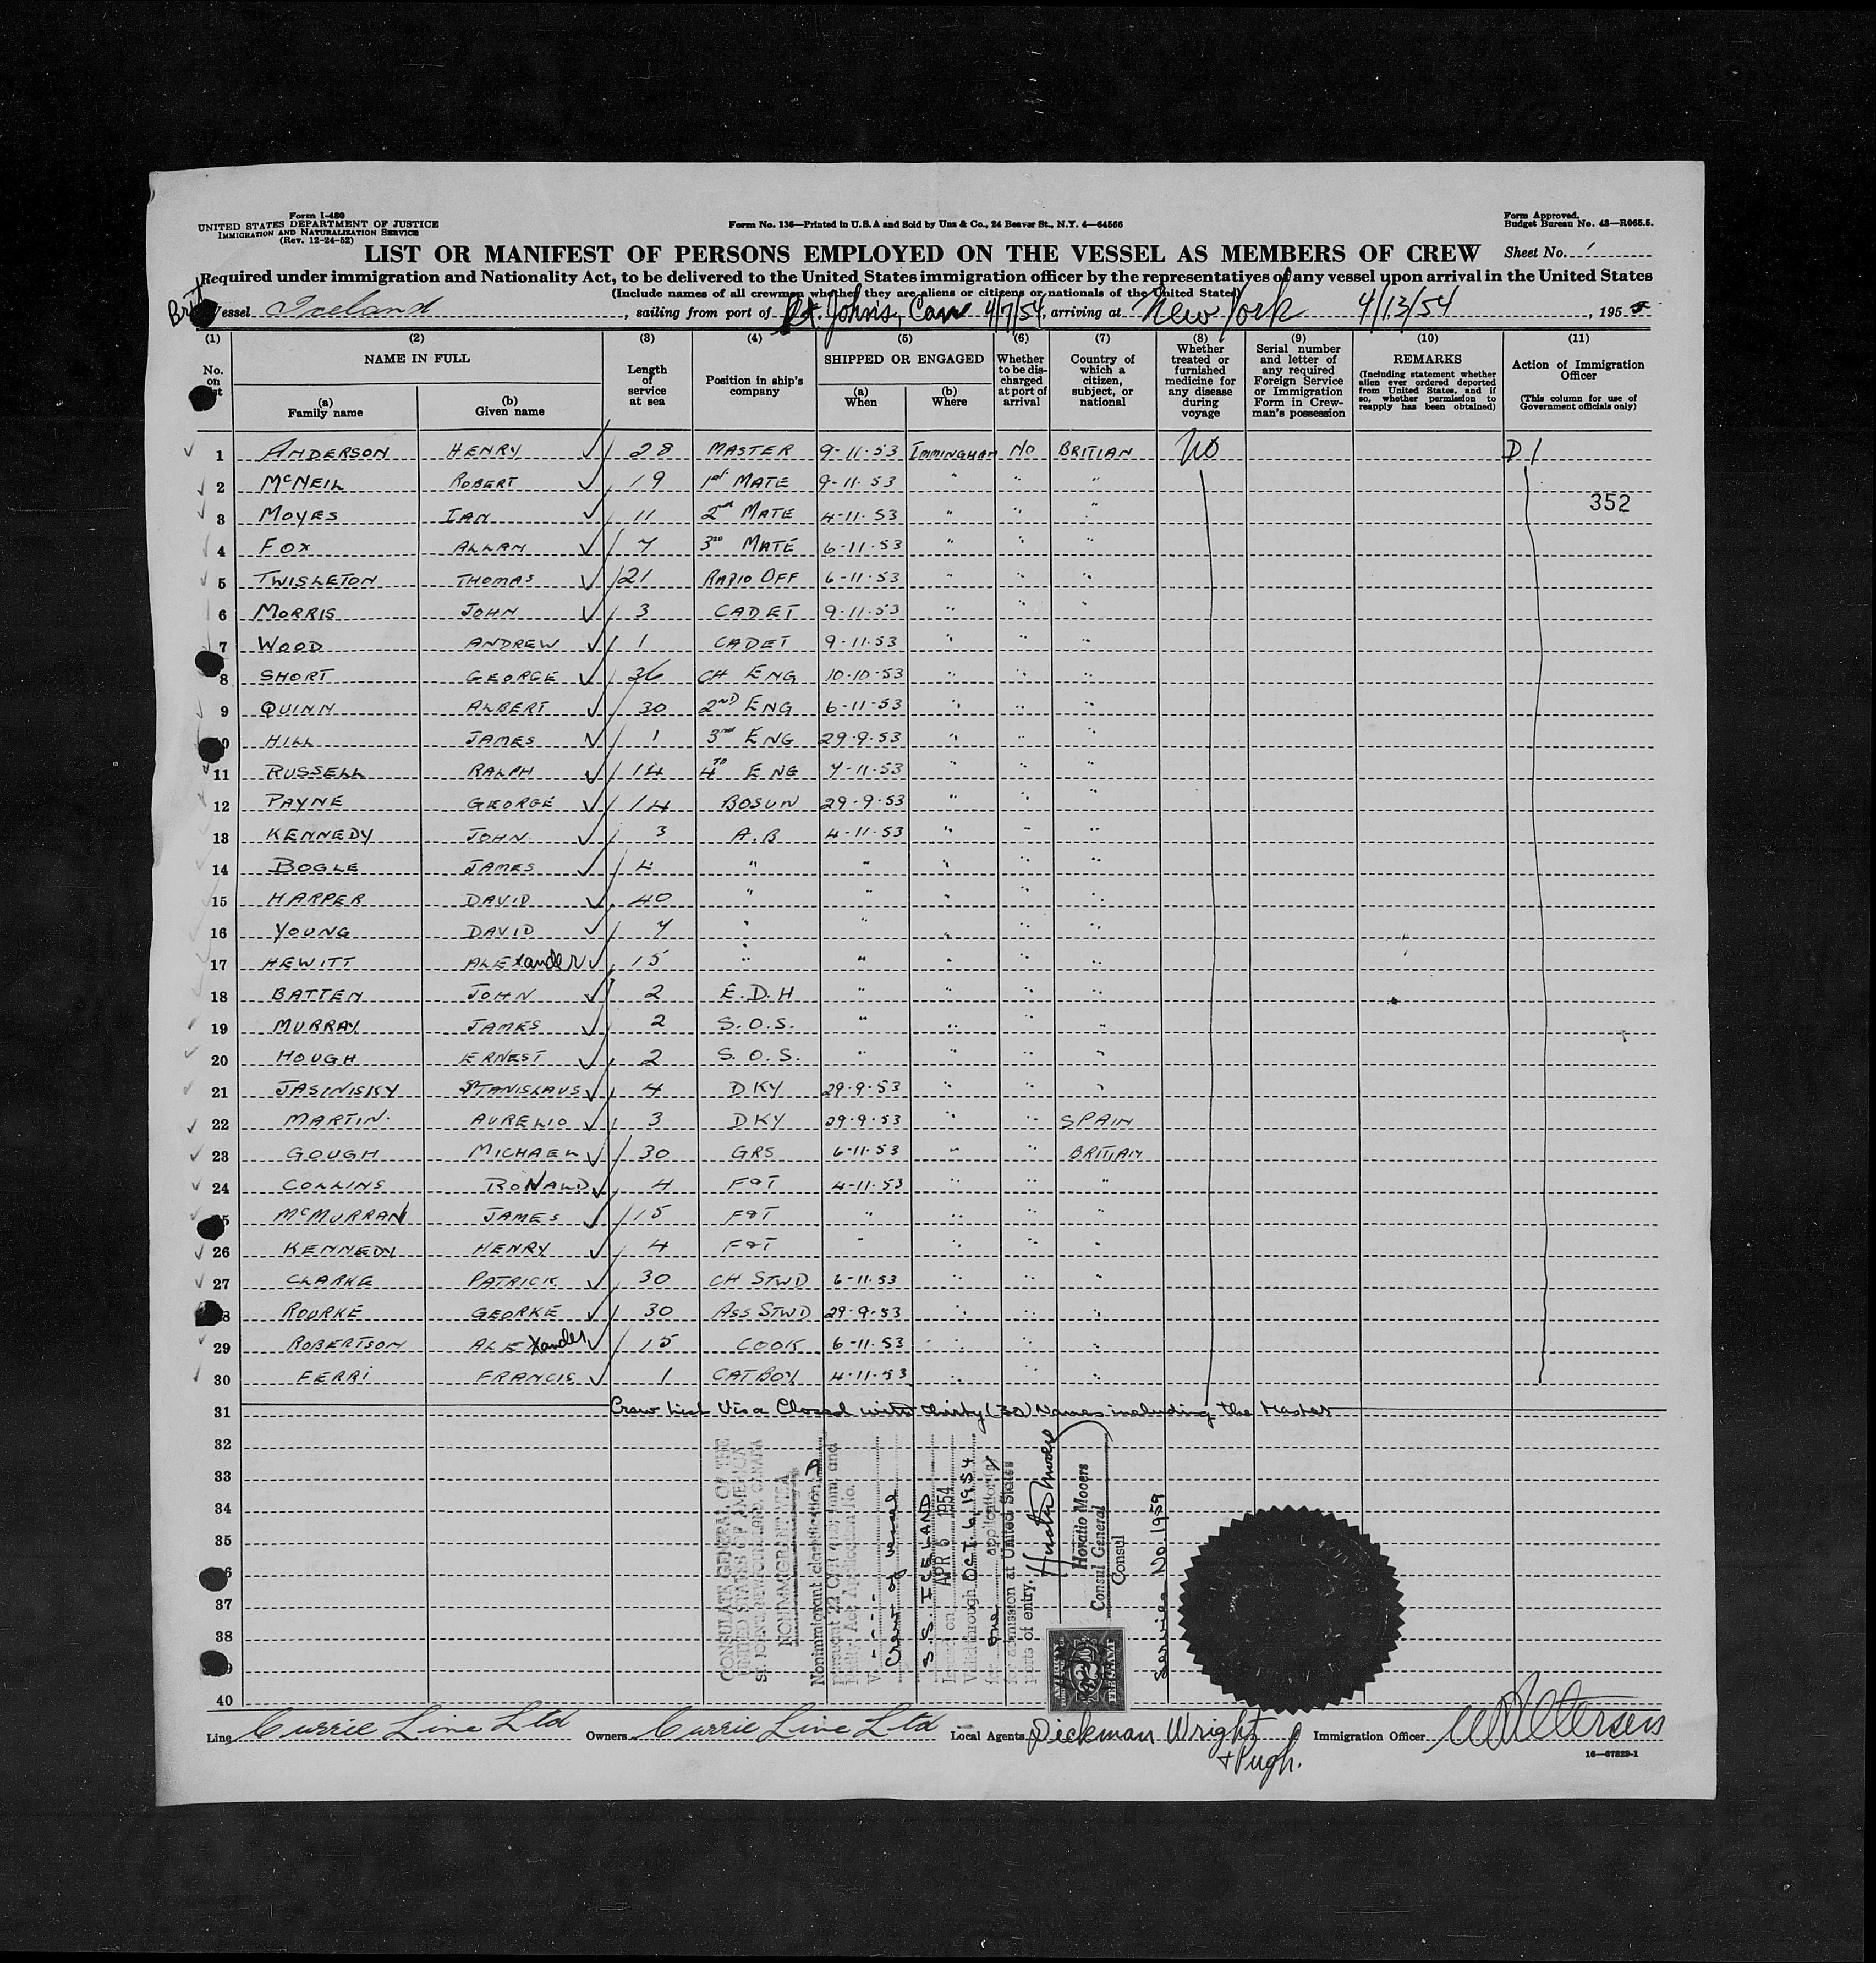 Form I-480
UNITED STATES DEPARTMENT OF JUSTICE
IMMIGRATION AND NATURALIZATION SERVICE
(Rev. 12-24-52)
Form No. 136—Printed in U.S.A and Sold by Unz & Co., 24 Beaver St., N.Y. 4—64566
Form Approved.
Budget Bureau No. 43—R065.5.
LIST OR MANIFEST OF PERSONS EMPLOYED ON THE VESSEL AS MEMBERS OF CREW
Sheet No. 1
Required under immigration and Nationality Act, to be delivered to the United States immigration officer by the representatives of any vessel upon arrival in the United States
(Include names of all crewmen whether they are aliens or citizens or nationals of the United States)
Brit Vessel Iceland, sailing from port of St. John's, Can 4/7/54, arriving at New York 4/13/54, 195
(1) (2) (3) (4) (5) (6) (7) (8) (9) (10) (11)
No. on list
NAME IN FULL
(a) Family name
(b) Given name
Length of service at sea
Position in ship's company
SHIPPED OR ENGAGED
(a) When
(b) Where
Whether to be discharged at port of arrival
Country of which a citizen, subject, or national
Whether treated or furnished medicine for any disease during voyage
Serial number and letter of any required Foreign Service or Immigration Form in Crewman's possession
REMARKS
(Including statement whether alien ever ordered deported from United States, and if so, whether permission to reapply has been obtained)
Action of Immigration Officer
(This column for use of Government officials only)
1 ANDERSON HENRY 28 MASTER 9-11-53 IMMINGHAM NO BRITIAN NO D1
2 McNEIL ROBERT 19 1st MATE 9-11-53 " " "
352
3 MOYES IAN 11 2nd MATE 4-11-53 " " "
4 FOX ALLAN 7 3RD MATE 6-11-53 " " "
5 TWISLETON THOMAS 21 RADIO OFF 6-11-53 " " "
6 MORRIS JOHN 3 CADET 9-11-53 " " "
7 WOOD ANDREW 1 CADET 9-11-53 " " "
8 SHORT GEORGE 36 CH ENG 10-10-53 " " "
9 QUINN ALBERT 30 2ND ENG 6-11-53 " " "
10 HILL JAMES 1 3RD ENG 29-9-53 " " "
11 RUSSELL RALPH 14 4TH ENG 7-11-53 " " "
12 PAYNE GEORGE 14 BOSUN 29-9-53 " " "
13 KENNEDY JOHN 3 A.B 4-11-53 " " "
14 BOGLE JAMES 4 " " " " "
15 HARPER DAVID 40 " " " " "
16 YOUNG DAVID 7 " " " " "
17 HEWITT ALExander 15 " " " " "
18 BATTEN JOHN 2 E.D.H " " " "
19 MURRAY JAMES 2 S.O.S. " " " "
20 HOUGH ERNEST 2 S.O.S. " " " "
21 JASINISKY STANISLAUS 4 DKY 29-9-53 " " "
22 MARTIN AURELIO 3 DKY 29-9-53 " " SPAIN
23 GOUGH MICHAEL 30 GRS 6-11-53 " " BRITIAN
24 COLLINS RONALD 4 F&T 4-11-53 " " "
25 McMURRAN JAMES 15 F&T " " " "
26 KENNEDY HENRY 4 F&T " " " "
27 CLARKE PATRICK 30 CH STWD 6-11-53 " " "
28 ROURKE GEORKE 30 ASS STWD 29-9-53 " " "
29 ROBERTSON ALExander 15 COOK 6-11-53 " " "
30 FERRI FRANCIS 1 CATBOY 4-11-53 " " "
31 Crew List Visa Closed with thirty (30) Names including the Master
32
33
34
35
36
37
38
39
40
CONSULATE GENERAL OF THE
UNITED STATES OF AMERICA
ST. JOHN'S, NEWFOUNDLAND, CANADA
NONIMMIGRANT VISA
Nonimmigrant classification D
Crew of vessel
S.S. ICELAND
Issued on APR 6 1954
Valid through OCT. 6, 1954
for one application
for admission at United States
ports of entry.
Horatio Mooers
Consul General
Consul
Service No. 1959
Line Currie Line Ltd Owners Currie Line Ltd Local Agents Dickman Wright & Pugh. Immigration Officer
16—67829-1